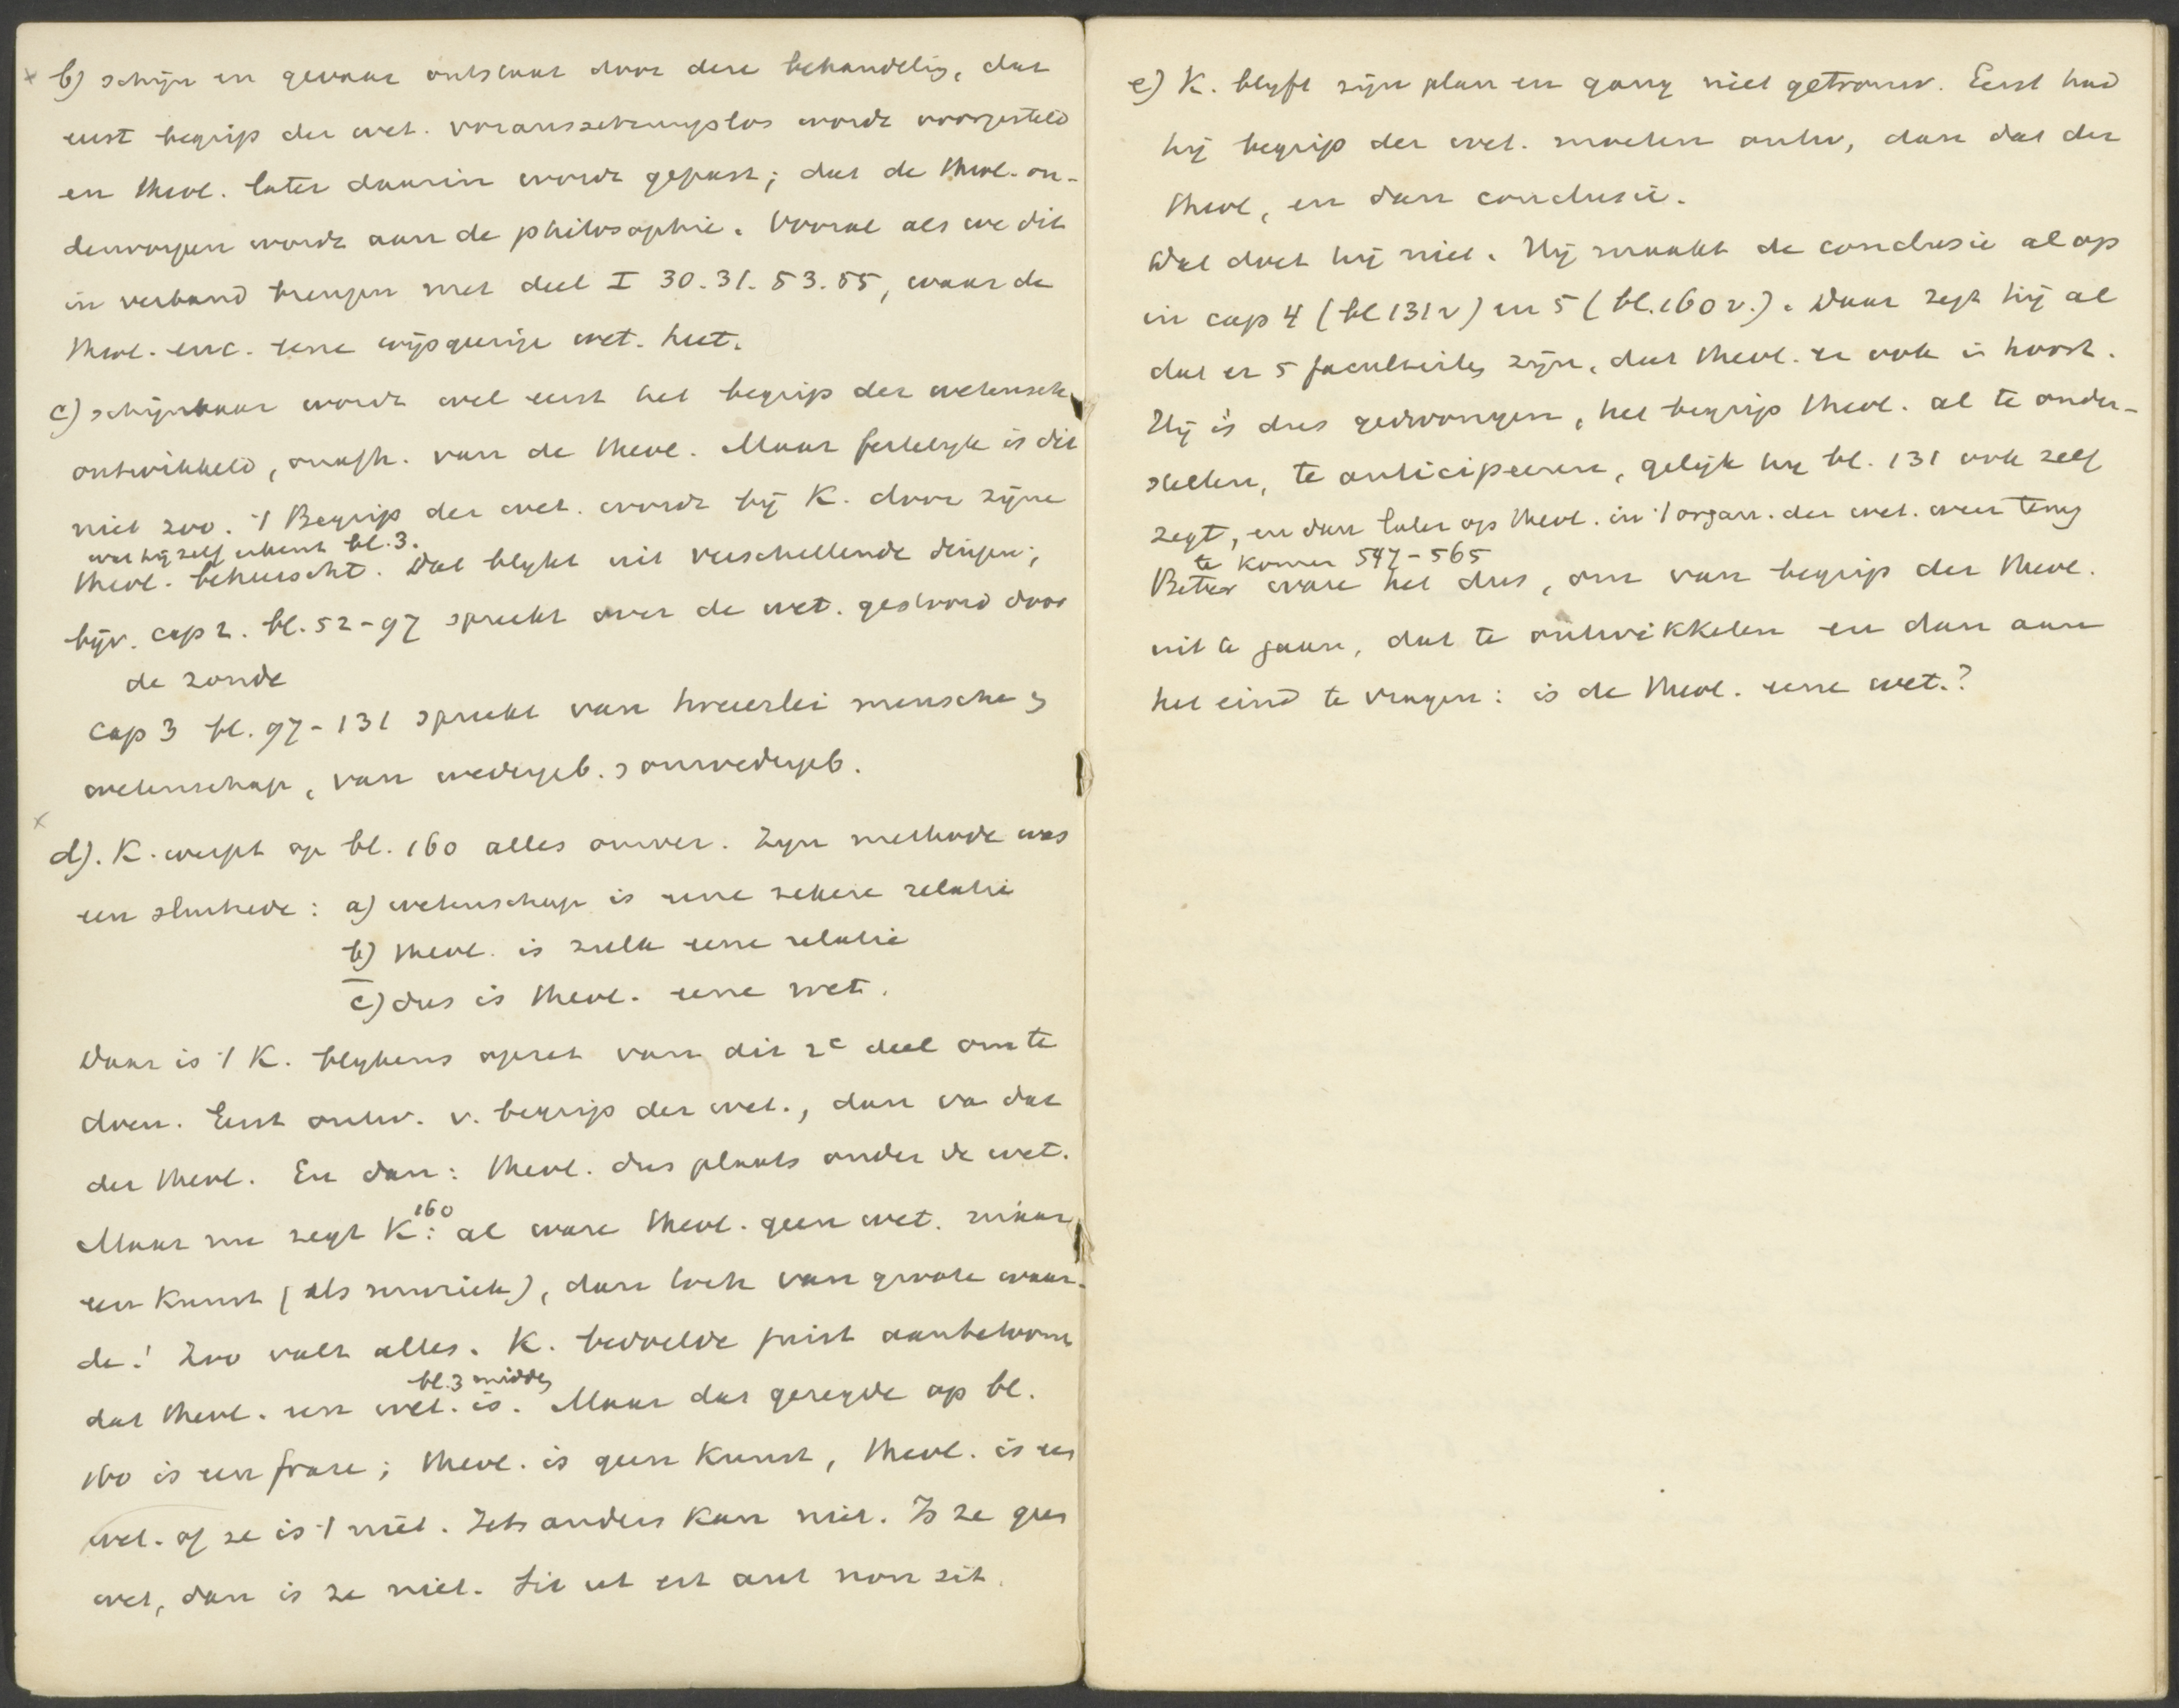 x b) schijn en gevaar ontstaat door deze behandelig, dat
eerst begrip der wet. voraussetzungslos wordt voorgesteld
en theol. later daarin wordt gepast; dat de theol. on-
derworpen wordt aan de philosophie. Vooral als we dit
in verband brengen met deel I 30. 31. 53. 55, waar de
theol. enc. eene wijsgeerige wet. heet.
c) schijnbaar wordt wel eerst het begrip der wetensch.
ontwikkeld, onafh. van de theol. Maar feitelijk is dit
niet zoo. 't Begrip der wet. wordt bij K. door zijne
wat hij zelf erkent bl. 3.
theol. beheerscht. Dat blijkt uit verschillende dingen;
bijv. cap 2. bl. 52-97 spreekt over de wet. gestoord door
de zonde
cap 3 bl. 97-131 spreekt van tweeërlei mensche en
wetenschap, van wedergeb. en onwedergeb.
x
d). K. werpt op bl. 160 alles omver. Zijn methode was
een sluitrede: a) wetenschap is eene zekere relatie
b) theol. is zulk eene relatie
c) dus is theol. eene wet.
Daar is 't K. blijkens opzet van dit 2e deel om te
doen. Eerst ontw. v. begrip der wet., dan va dat
der theol. En dan: theol. dus plaats onder de wet.
160
Maar nu zegt K: al ware theol. geen wet. maar
een kunst (als muziek), dan toch van groote waar-
de! Zoo valt alles. K. bedoelde juist aantetoonen
bl. 3 midden
dat theol. een wet. is. Maar dat gezegde op bl.
160 is een frase; theol. is geen kunst, theol. is een
wet. of ze is 't niet. Iets anders kan niet. Is ze geen
wet, dan is ze niet. Sit ut est aut non sit.
e) K. blijft zijn plan en gang niet getrouw. Eerst had
hij begrip der wet. moeten ontw, dan dat der
theol, en dan conclusie.
Dat doet hij niet. Hij maakt de conclusie al op
in cap 4 (bl 131 v) en 5 (bl. 160 v.). Daar zegt hij al
dat er 5 faculteiten zijn, dat theol. er ook in hoort.
Hij is dus gedwongen, het begrip theol. al te onder-
stellen, te anticipeeren, gelijk hij bl. 131 ook zelf
zegt, en dan later op theol. in 't organ. der wet. weer terug
te komen 547-565
Beter ware het dus, om van begrip der theol.
uit te gaan, dat te ontwikkelen en dan aan
het eind te vragen: is de theol. eene wet.?